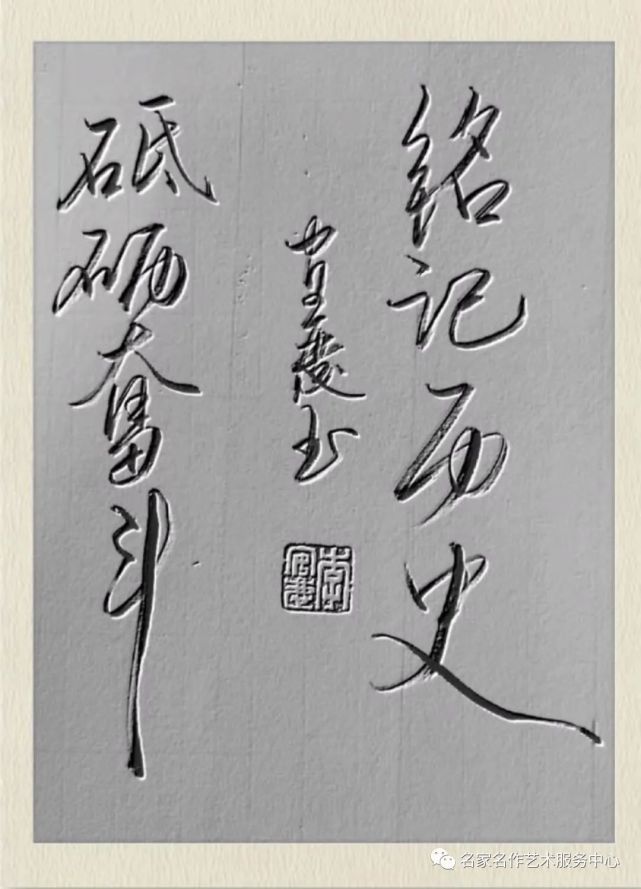 铭记历史
砥砺奋斗
书
李
名家名作艺术服务中心